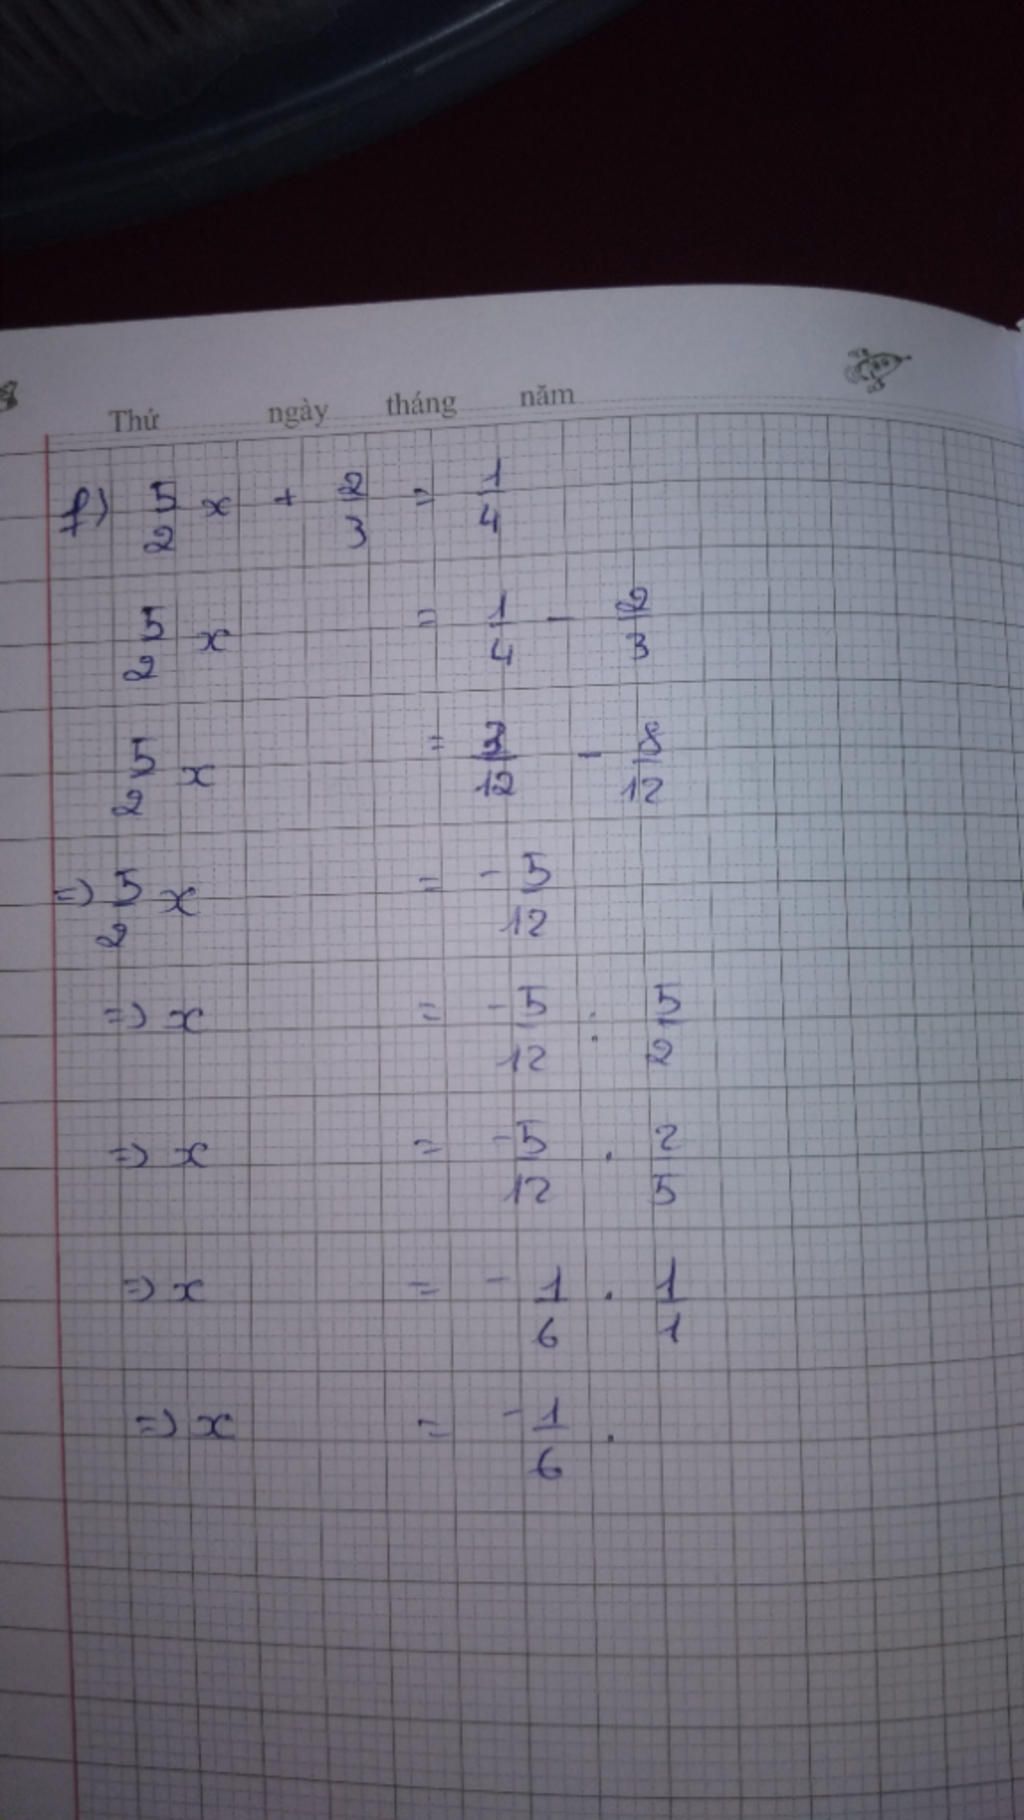 Thứ ngày tháng năm
f) 5/2 x + 2/3 = 1/4
5/2 x = 1/4 - 2/3
5/2 x = 3/12 - 8/12
=> 5/2 x = -5/12
=> x = -5/12 : 5/2
=> x = -5/12 . 2/5
=> x = -1/6 . 1/1
=> x = -1/6 .